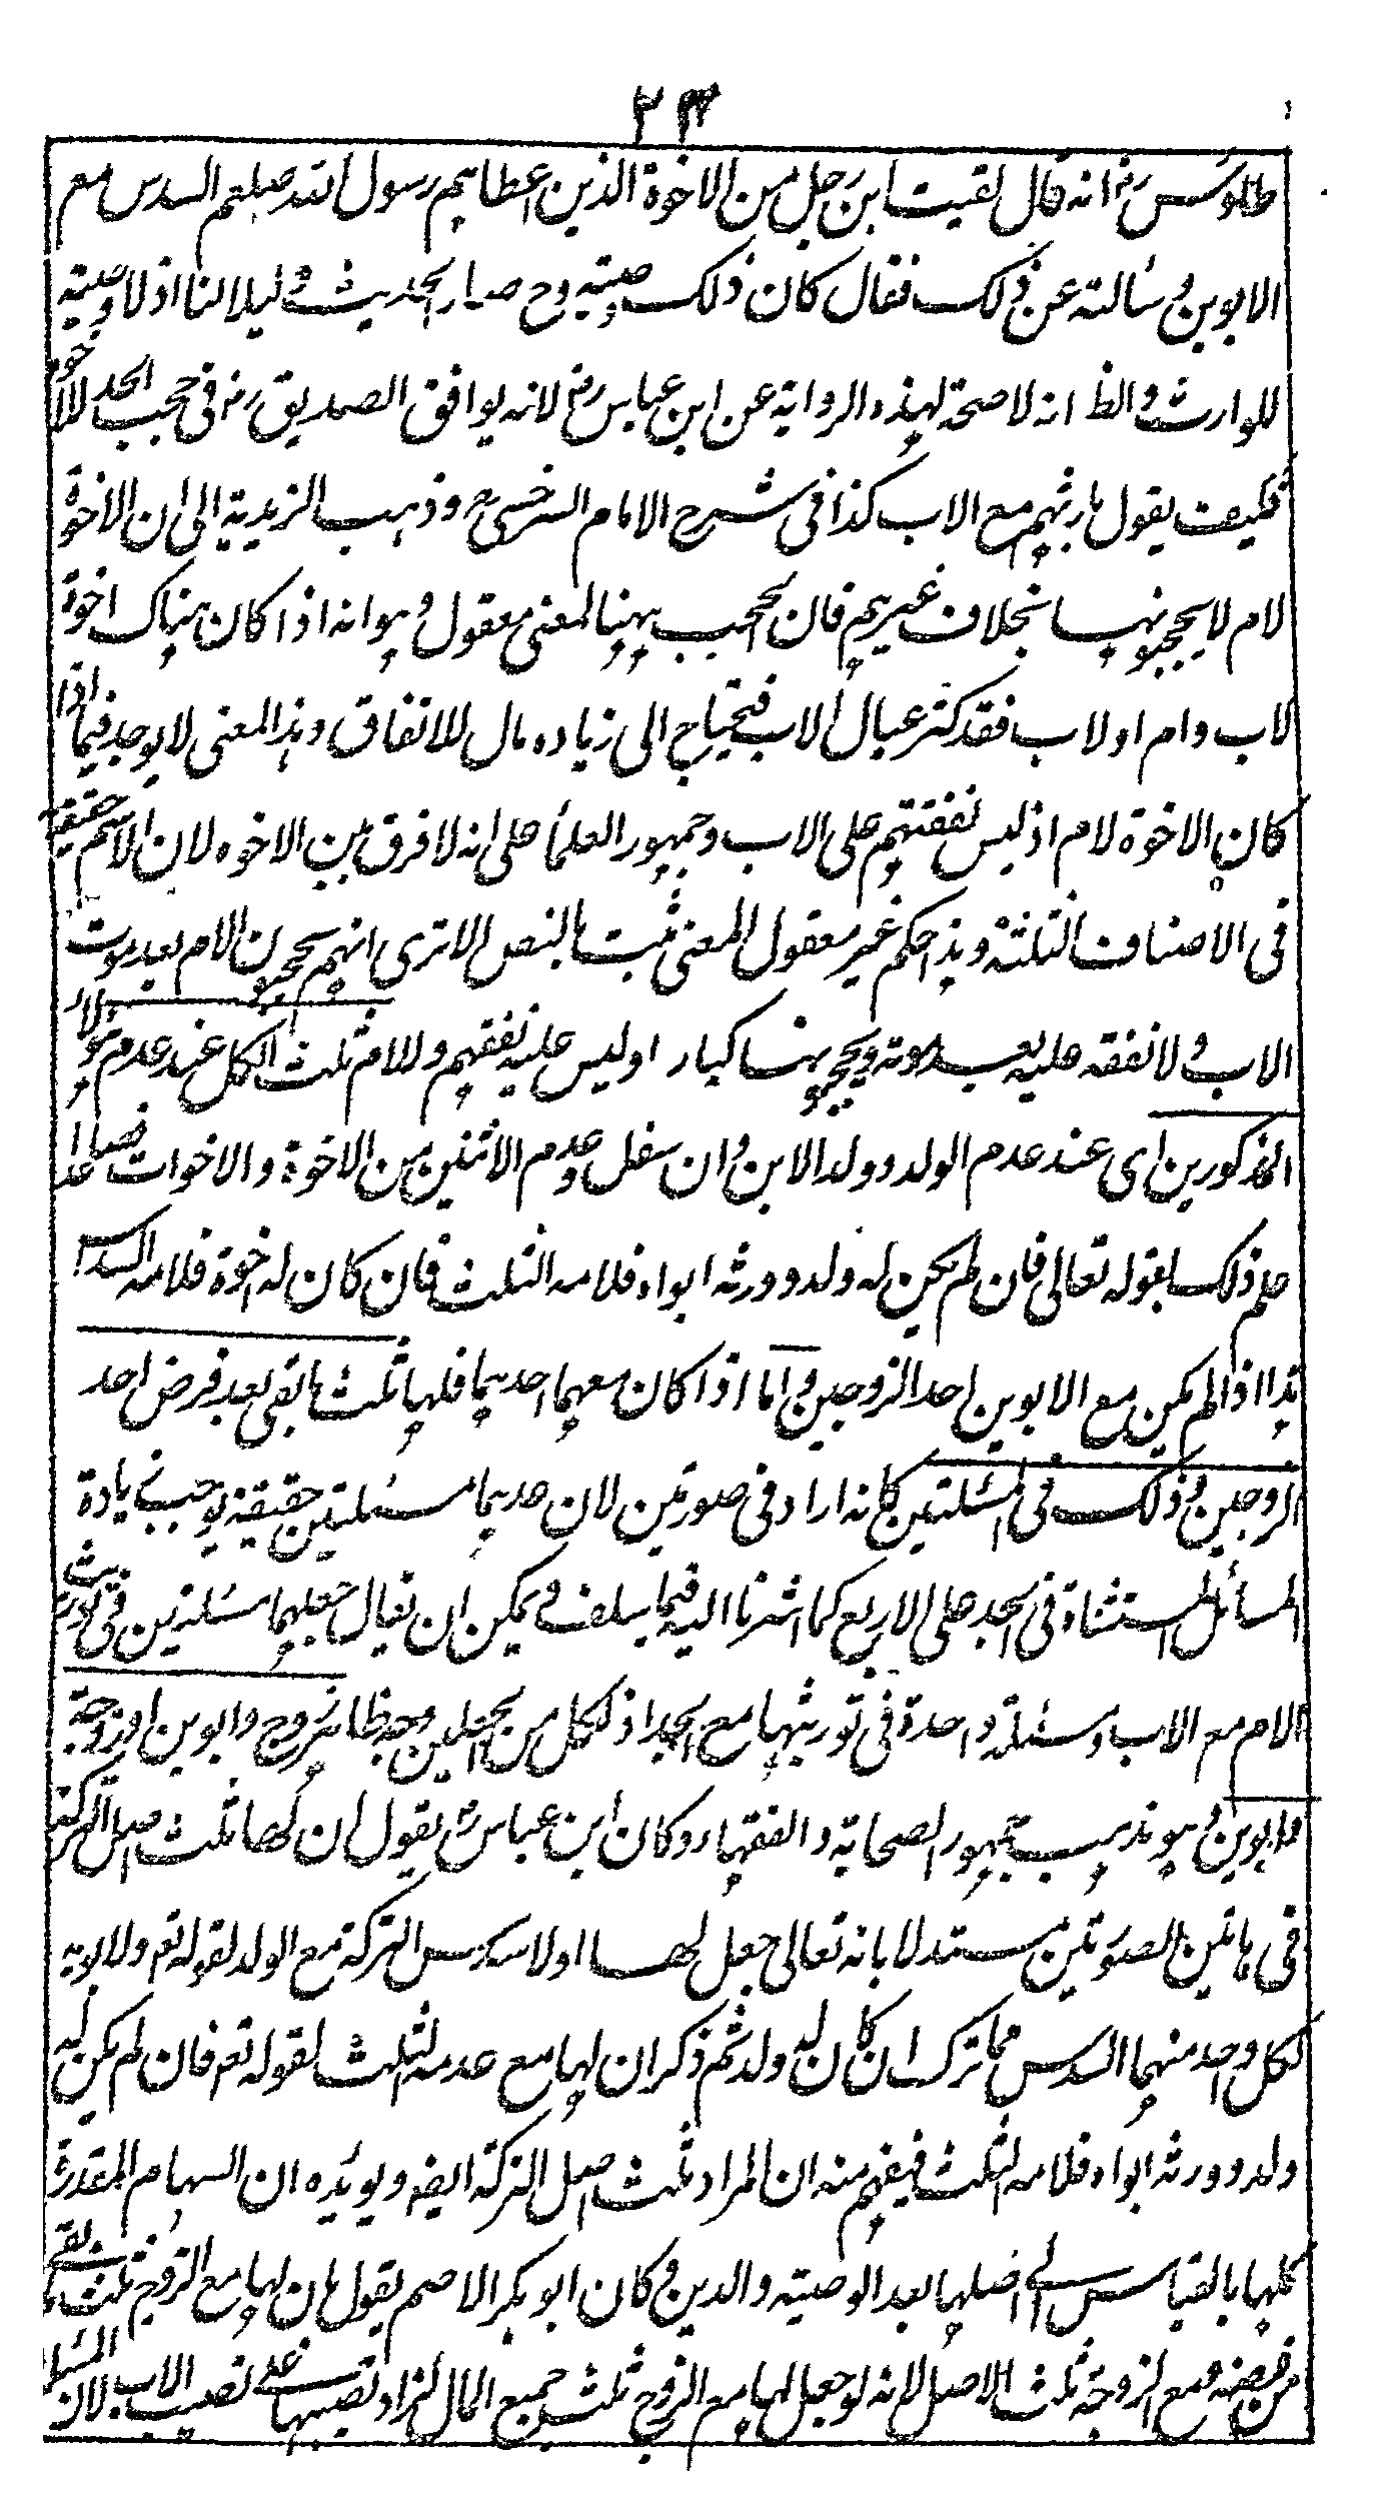 ٢٣
طاوس رض انه قال لقيت ابن رجل من الاخوة الذين اعطاهم رسول الله صلعم السدس مع
الابوين وسألته عن ذلك فقال كان ذلك وصية وح صار الحديث دليلا لنا اذ لا وصية
للوارث والظ انه لا صحة لهذه الرواية عن ابن عباس رض لانه يوافق الصديق رض في حجب الجد للاخوة
فكيف يقول بارثهم مع الاب كذا في شرح الامام السرخسي رح وذهب الزيدية الى ان الاخوة
لام لا يحجبونها بخلاف غيرهم فان الحجب ههنا لمعنى معقول وهو انه اذا كان هناك اخوة
لاب وام او لاب فقد كثر عيال الاب فيحتاج الى زيادة مال للانفاق وهذا المعنى لا يوجد فيما اذا
كان الاخوة لام اذ ليس نفقتهم على الاب وجمهور العلمأ على انه لا فرق بين الاخوه لان الاسم حقيقة
في الاصناف الثلثة وهذا حكم غير معقول المعنى ثبت بالنص الا ترى انهم يحجبون الام بعد موت
الاب ولا نفقه عليه بعد موته ويحجبونها كبارا وليس عليه نفقتهم وللام ثلث الكل عند عدم هؤلاء
المذكورين اى عند عدم الولد وولد الابن وان سفل وعدم الاثنين من الاخوة والاخوات فصاعدا
علم ذلك بقوله تعالى فان لم يكن له ولد وورثه ابواه فلامه الثلث فان كان له اخوة فلامه السدس
هذا اذا لم يكن مع الابوين احد الزوجين واما اذا كان معهما احدهما فلها ثلث ما بقى بعد فرض احد
الزوجين وذلك في المسئلتين كانه اراد في صورتين لان عدهما مسئلتين حقيقة يوجب زيادة
المسائل المستثناة في الجد على الاربع كما اشرنا اليه فيما سلف ويمكن ان يقال جعلهما مسئلتين في توريث
الام مع الاب ومسئلة واحدة في توريثها مع الجد اذ لكل من الجعلين وجه ظاهر زوج وابوين او زوجة
وابوين وهو مذهب جمهور الصحابة والفقهاء وكان ابن عباس رض يقول ان لها ثلث اصل التركة
في هاتين الصورتين مستدلا بانه تعالى جعل لها اولا سدس التركة مع الولد لقوله تع ولابويه
لكل واحد منهما السدس مما ترك ان كان له ولد ثم ذكر ان لها مع عدمه الثلث لقوله تع فان لم يكن له
ولد وورثه ابواه فلامه الثلث فيفهم منه ان المراد ثلث اصل التركة ايضا ويؤيده ان السهام المقدرة
كلها بالقياس الى اصلها بعد الوصية والدين وكان ابو بكر الاصم يقول بان لها مع الزوج ثلث ما بقى
من فرضه ومع الزوجة ثلث الاصل لانه لو جعل لها مع الزوج ثلث جميع المال لزاد نصيبها على نصيب الاب لان المسئلة